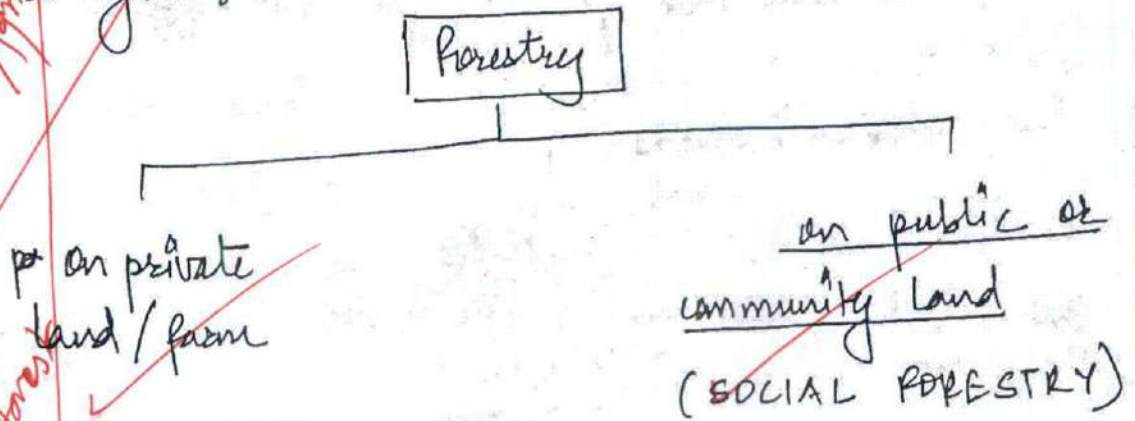 Forestry
on private
land / farm
on public or
community Land
(SOCIAL FORESTRY)